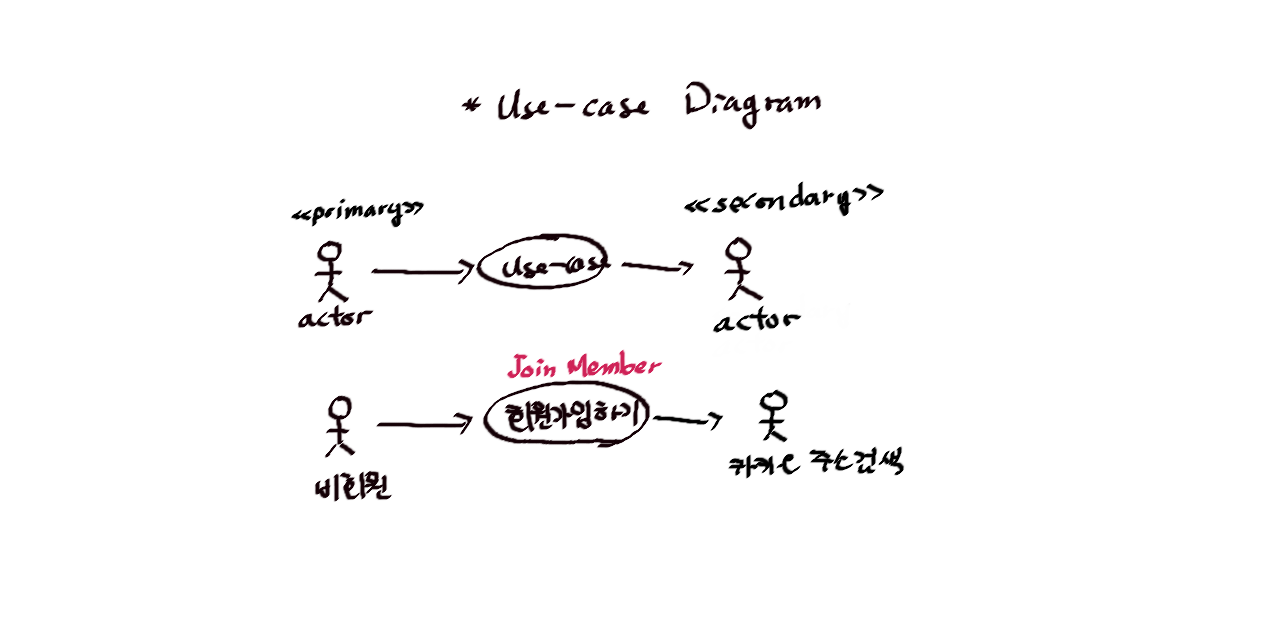 * Use-case Diagram
<<primary>>
<<secondary>>
use-case
actor
actor
Join Member
회원가입하기
비회원
카카오 주소검색